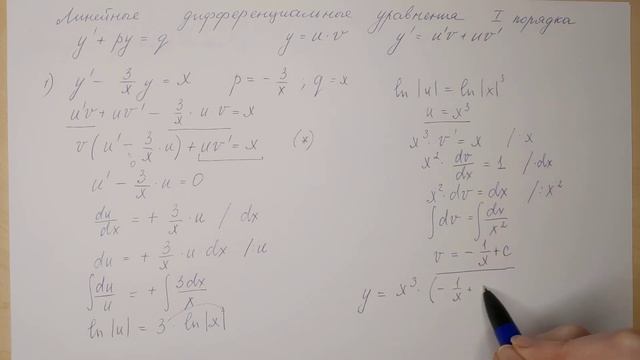 Линейные дифференциальные уравнения I порядка
y' + py = q y = u·v y' = u'v + uv'
1) y' - 3/x y = x p = - 3/x ; q = x
u'v + uv' - 3/x · u v = x
v ( u' - 3/x · u ) + uv' = x (*)
0
u' - 3/x · u = 0
du/dx = + 3/x · u / dx
du = + 3/x · u dx /: u
∫ du/u = + ∫ 3dx/x
ln |u| = 3 · ln |x|
ln |u| = ln |x|³
u = x³
x³ · v' = x /: x
x² · dv/dx = 1 /· dx
x² · dv = dx /: x²
∫ dv = ∫ dx/x²
v = - 1/x + c
y = x³ · ( - 1/x +